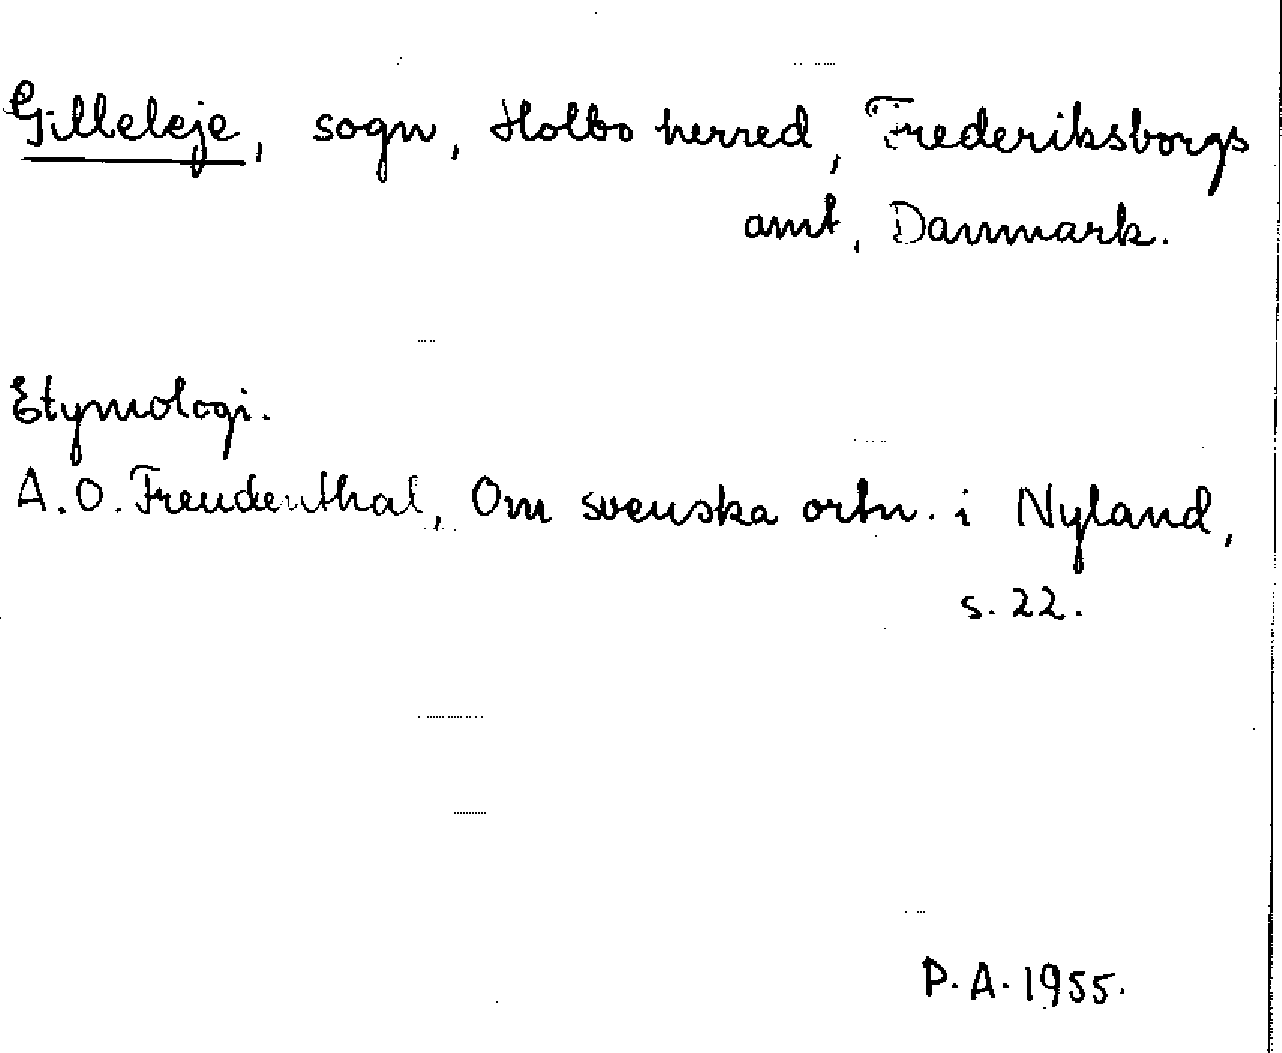 Gilleleje, sogn, Holbo herred, Frederiksborgs
amt, Danmark.
Etymologi.
A.O. Freudenthal, Om svenska ortn. i Nyland,
s. 22.
P.A. 1955.